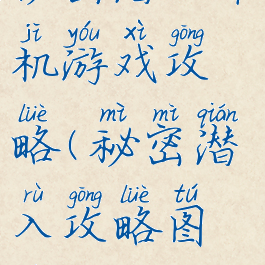 jī yóu xì gōng
机游戏攻
lüè mì mì qián
略(秘密潜
rù gōng lüè tú
入攻略图